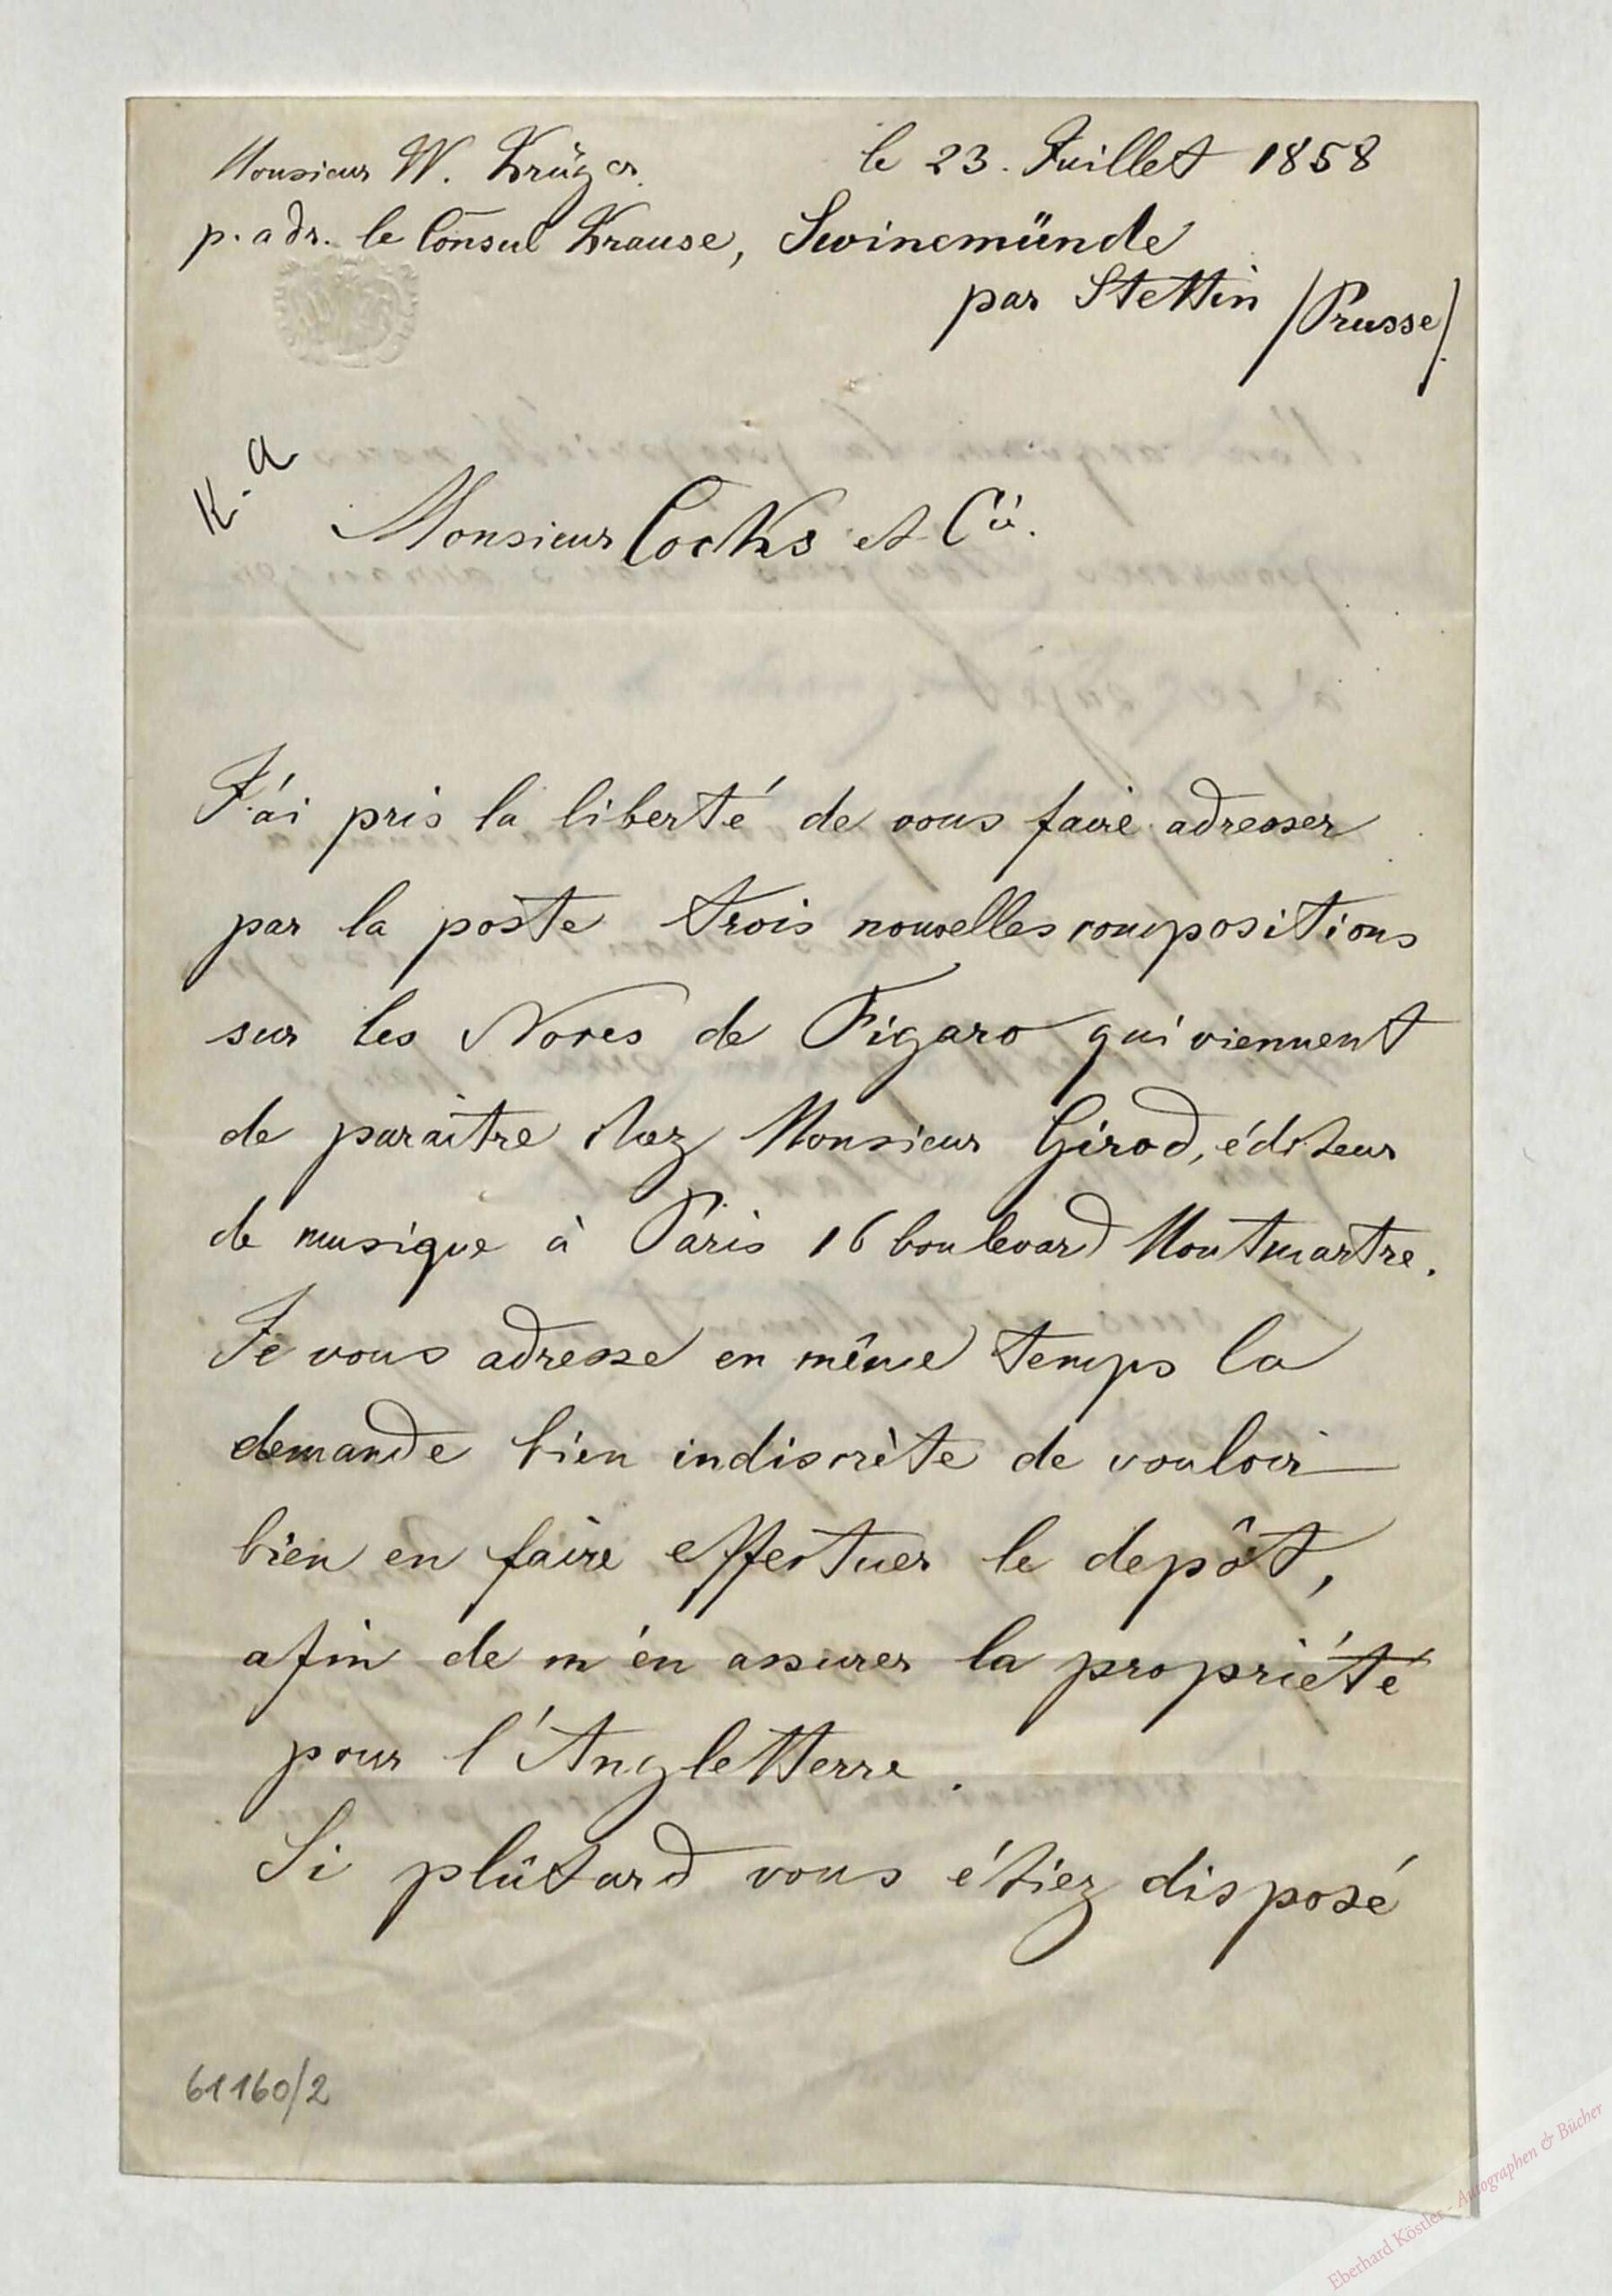 Monsieur W. Krüger.
le 23. Juillet 1858
p. adr. le Consul Krause, Swinemünde
par Stettin /Prusse/.
K. a
Monsieur Cocks et Cie.
J'ai pris la liberté de vous faire adresser
par la poste trois nouvelles compositions
sur les Noces de Figaro qui viennent
de paraître chez Monsieur Girod, éditeur
de musique à Paris 16 boulevard Montmartre.
Je vous adresse en même temps la
demande bien indiscrète de vouloir
bien en faire effectuer le depôt,
afin de m'en assurer la propriété
pour l'Angletterre.
Si plûtard vous étiez disposé
61160/2
Eberhard Köstler - Autographen & Bücher